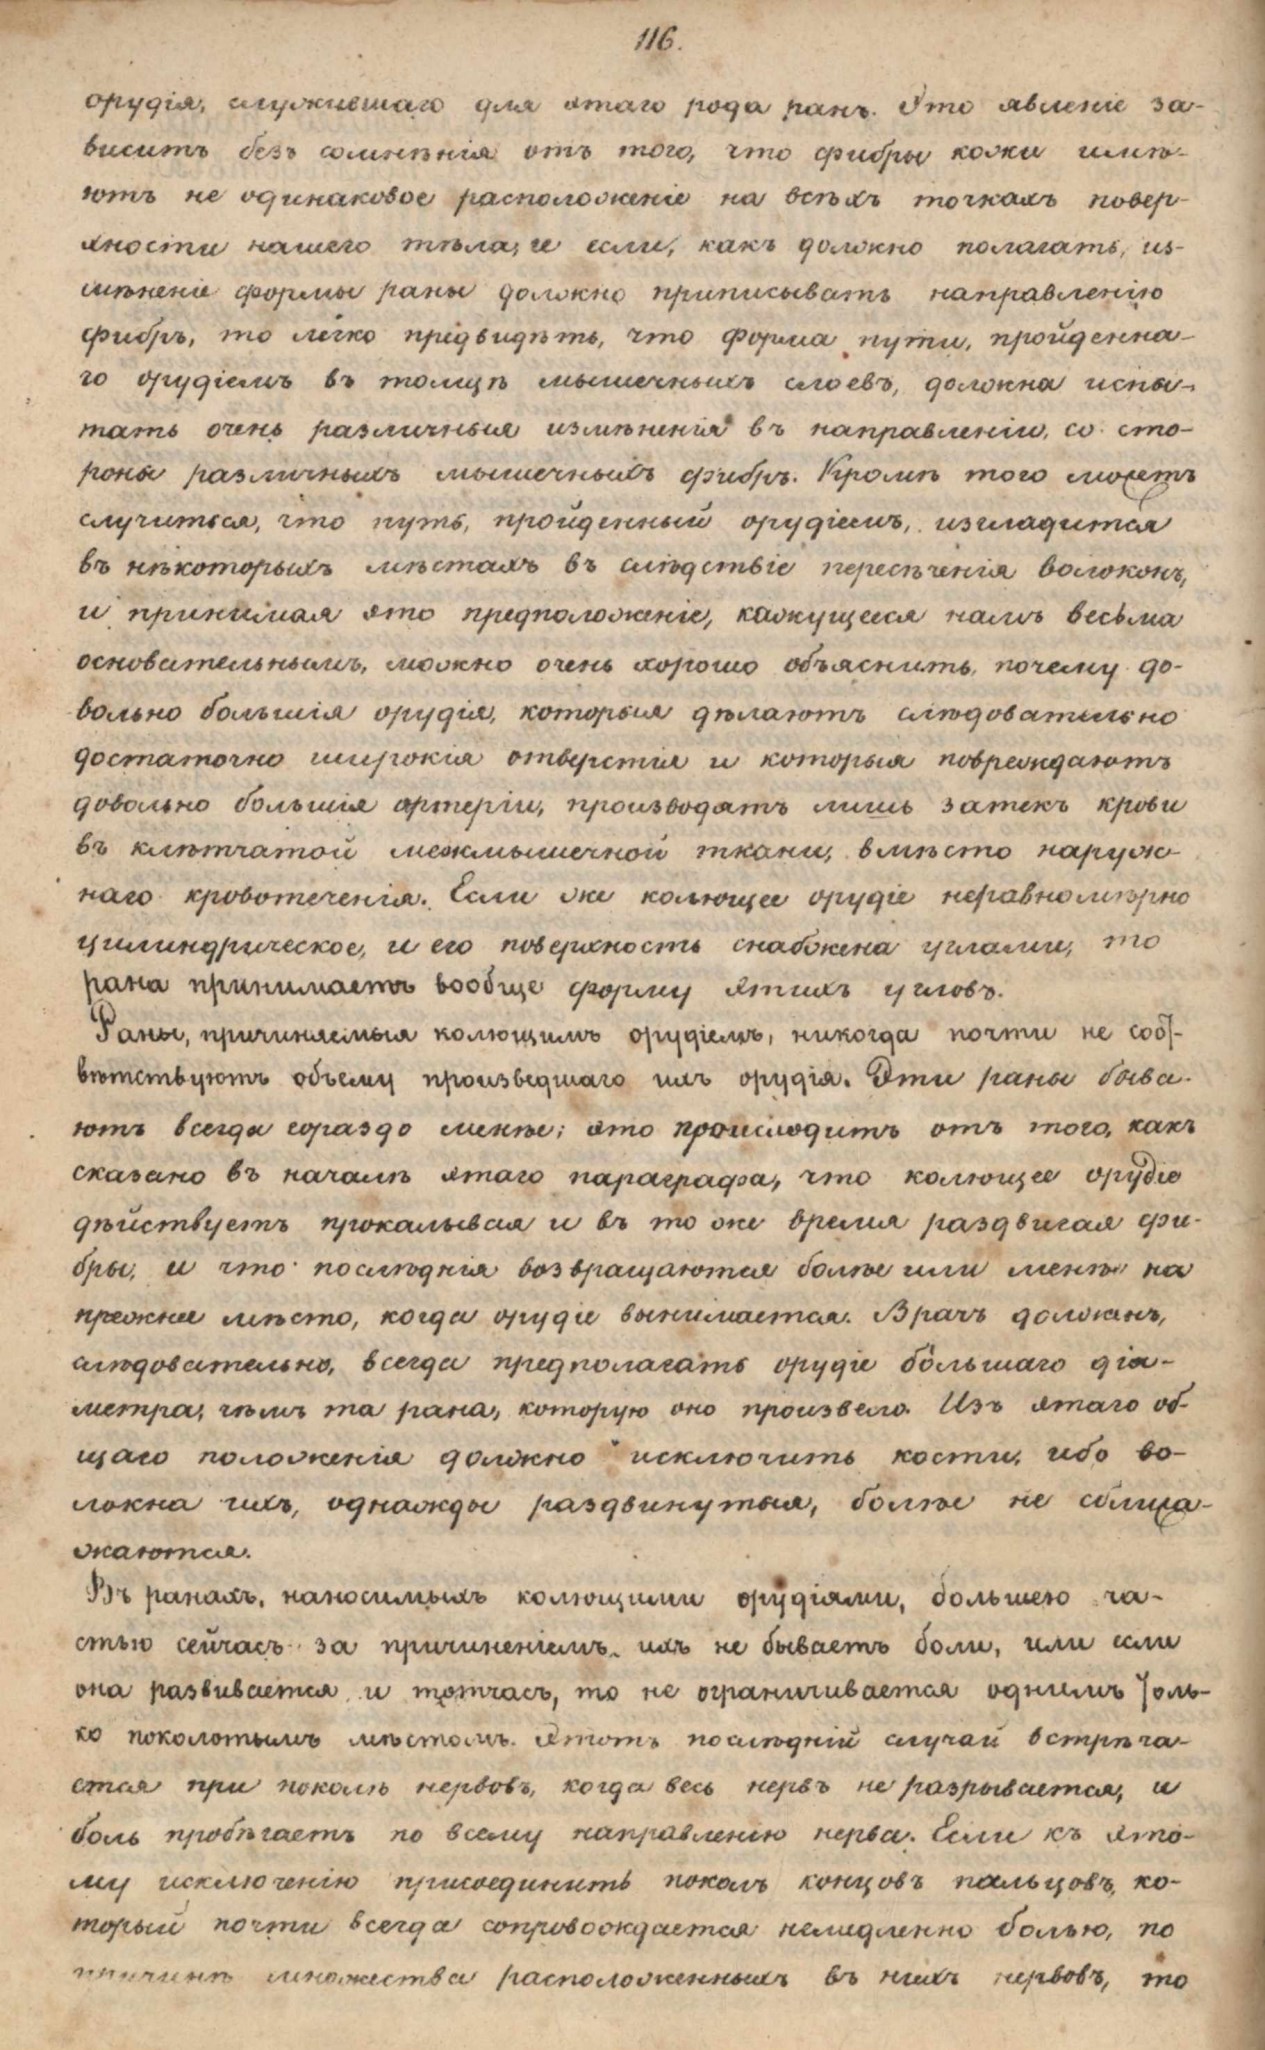 116.
орудія, служившаго для этаго рода ранъ. Это явленіе за-
виситъ безъ сомнѣнія отъ того, что фибры кожи имѣ-
ютъ не одинаковое расположеніе на всѣхъ точкахъ повер-
хности нашего тѣла; и если, какъ должно полагать, из-
мѣненіе формы раны должно приписывать направленію
фибръ, то легко предвидѣть, что форма пути, пройденна-
го орудіемъ въ толщѣ мышечныхъ слоевъ, должна испы-
тать очень различныя измѣненія въ направленіи, со сто-
роны различныхъ мышечныхъ фибръ. Кромѣ того можетъ
случиться, что путь, пройденный орудіемъ, изгладится
въ нѣкоторыхъ мѣстахъ въ слѣдствіе пересѣченія волоконъ,
и принимая это предположеніе, кажущееся намъ весьма
основательнымъ, можно очень хорошо объяснить, почему до-
вольно большія орудія, которыя дѣлаютъ слѣдовательно
достаточно широкія отверстія и которыя повреждаютъ
довольно большія артеріи, производятъ лишь затекъ крови
въ клѣтчатой межмышечной ткани, вмѣсто наруж-
наго кровотеченія. Если же колющее орудіе неравномѣрно
цилиндрическое, и его поверхность снабжена углами, то
рана принимаетъ вообще форму этихъ угловъ.
Раны, причиняемыя колющимъ орудіемъ, никогда почти не соот-
вѣтствуютъ объему произведшаго ихъ орудія. Эти раны быва-
ютъ всегда гораздо менѣе; это происходитъ отъ того, какъ
сказано въ началѣ этаго параграфа, что колющее орудіе
дѣйствуетъ прокалывая и въ то же время раздвигая фи-
бры, и что послѣднія возвращаются болѣе или менѣе на
прежнее мѣсто, когда орудіе вынимается. Врачъ долженъ,
слѣдовательно, всегда предполагать орудіе большаго діа-
метра, чѣмъ та рана, которую оно произвело. Изъ этаго об-
щаго положенія должно исключить кости, ибо во-
локна ихъ, однажды раздвинутыя, болѣе не сближа-
жаются.
Въ ранахъ, наносимыхъ колющими орудіями, большею ча-
стью сейчасъ за причиненіемъ ихъ не бываетъ боли, или если
она развивается и тотчасъ, то не ограничивается однимъ толь-
ко поколотымъ мѣстомъ. Этотъ послѣдній случай встрѣча-
ется при поколѣ нервовъ, когда весь нервъ не разрывается, и
боль пробѣгаетъ по всему направленію нерва. Если къ это-
му исключенію присоединить поколъ концовъ пальцовъ, ко-
торый почти всегда сопровождается немедленно болью, по
причинѣ множества расположенныхъ въ нихъ нервовъ, то